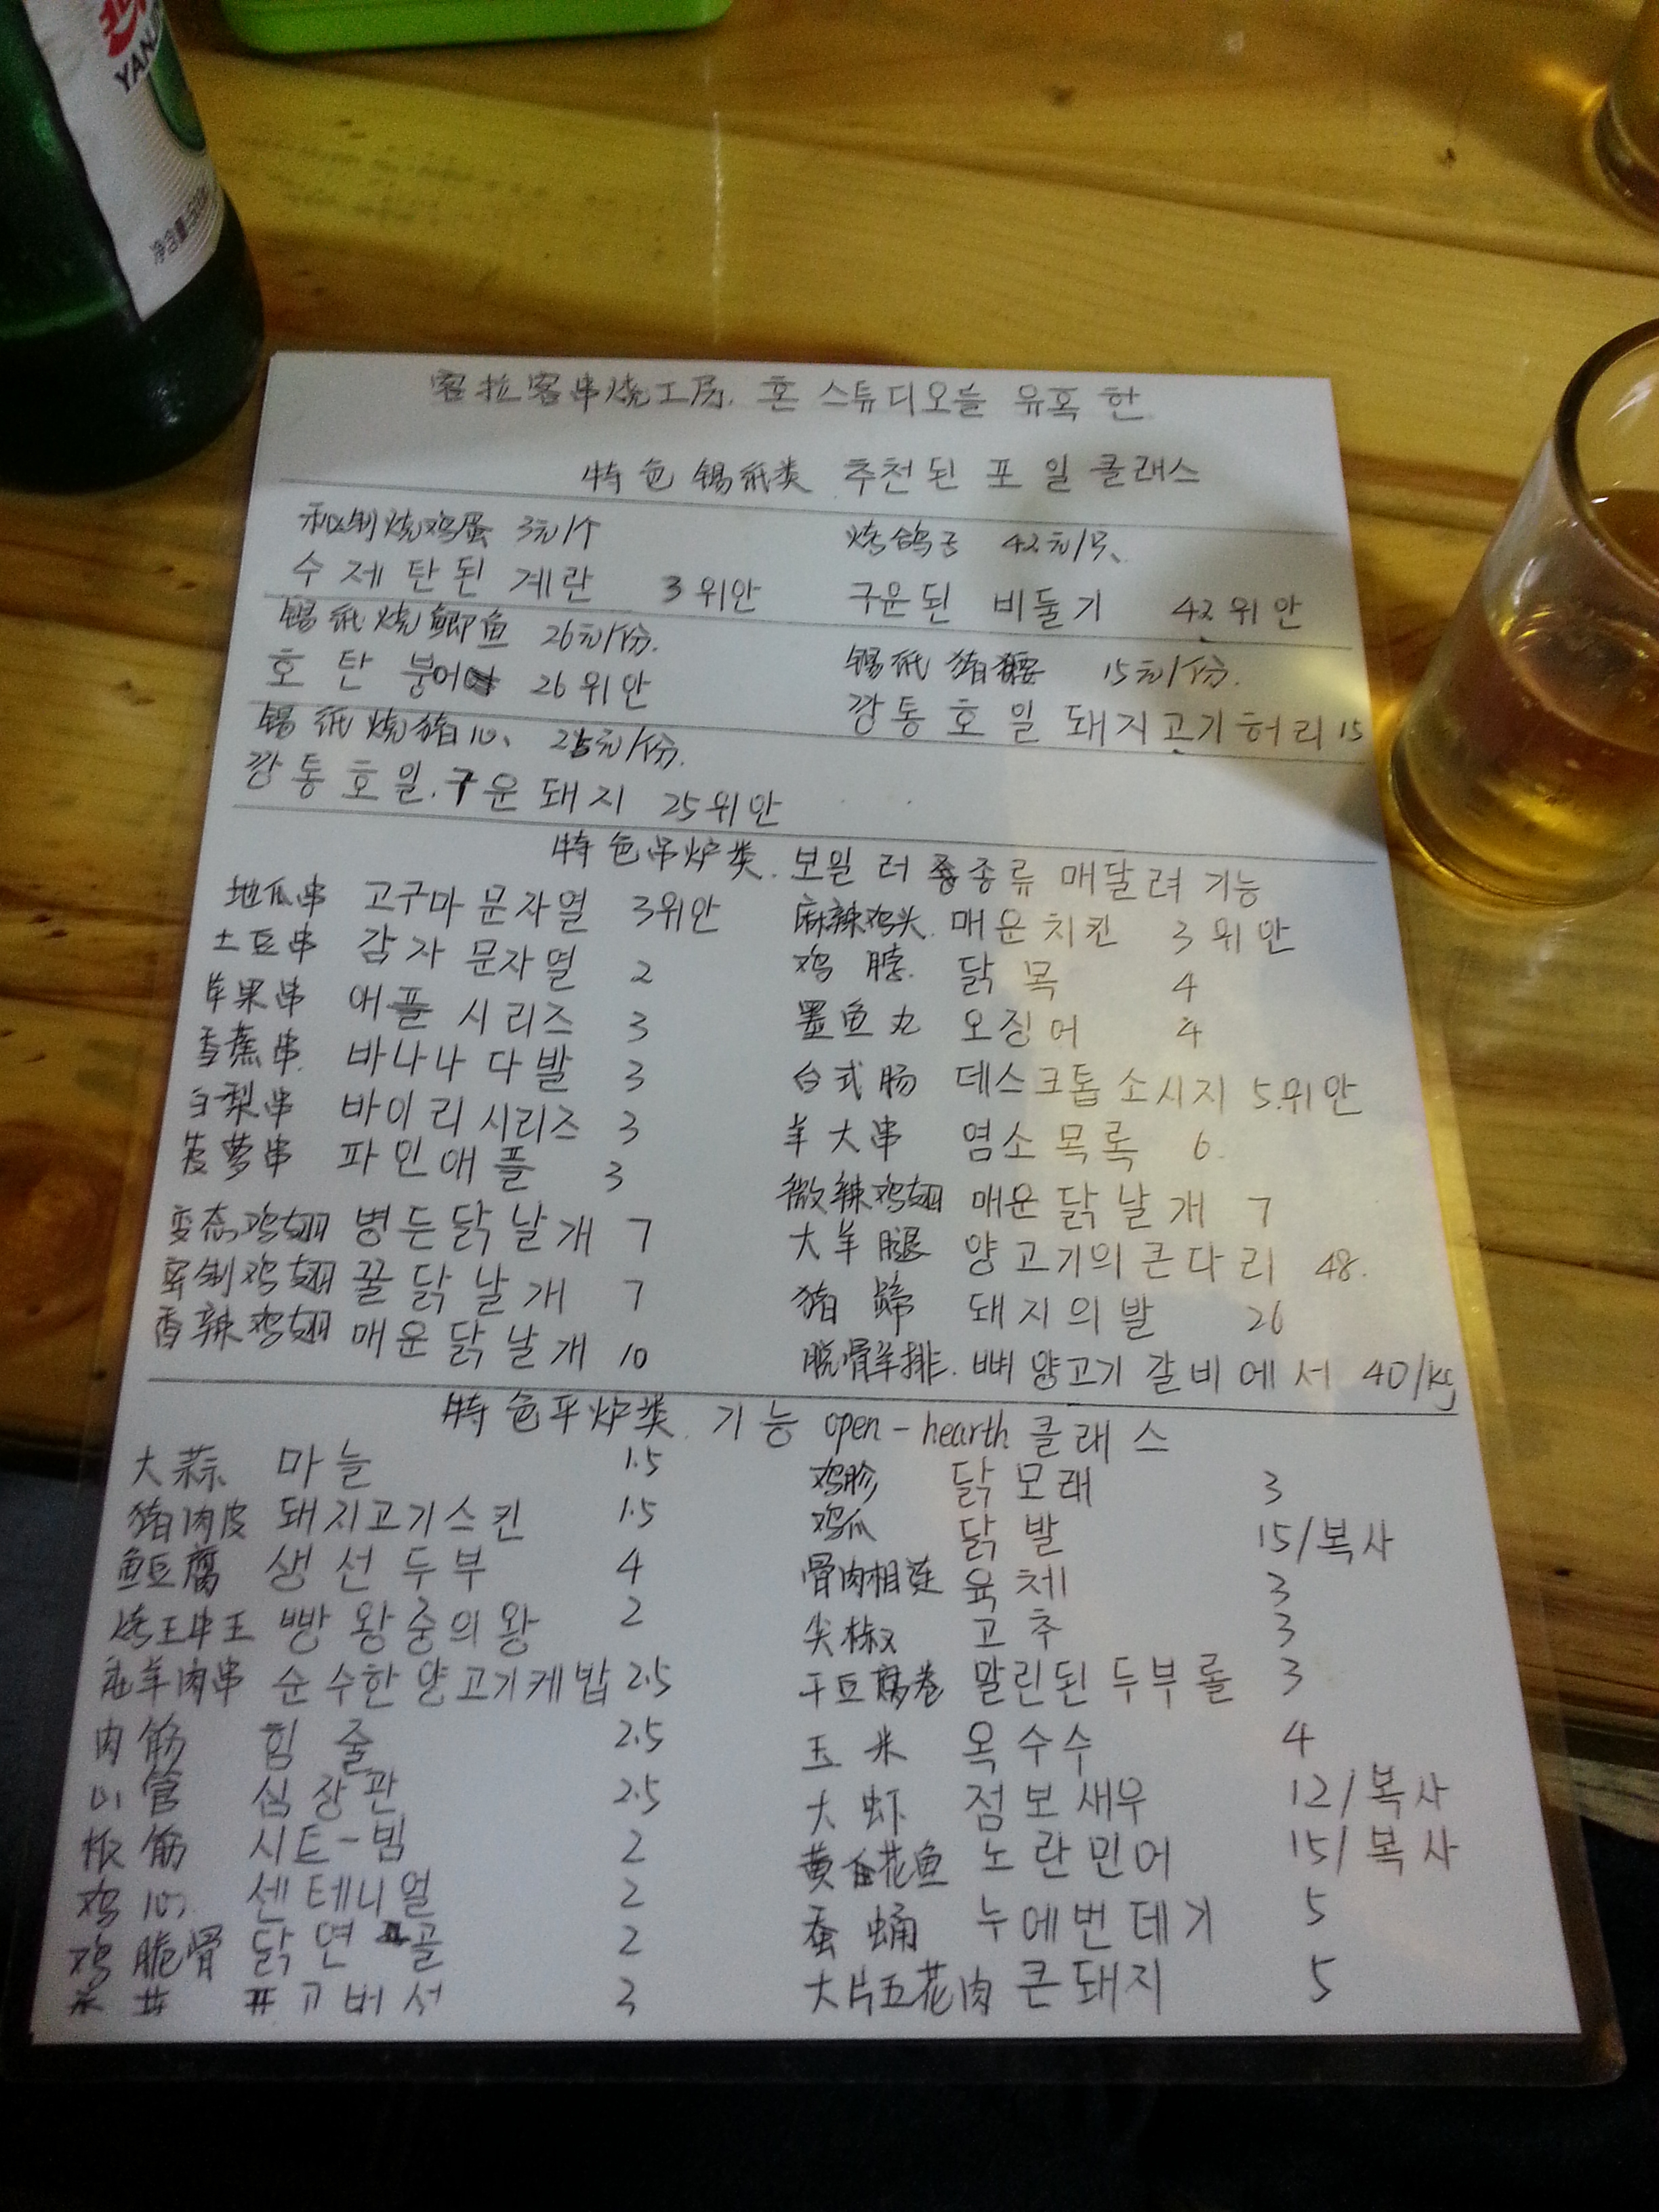 YANJ
净含量:500ml
客拉客串烧工房. 혼 스튜디오를 유혹 한
特色锡纸类 추천된 포일클래스
私制烧鸡蛋 3元/个
수제탄된 계란 3위안
烧鸽子 42元/只
구운된 비둘기 42위안
锡纸烧鲫鱼 26元/份.
호탄 붕어 26위안
锡纸猪腰 15元/份.
깡통호일돼지고기허리 15
锡纸烧猪心 25元/份.
깡통호일.구운돼지 25위안
特色吊炉类. 보일러 종류 매달려 기능
地瓜串 고구마 문자열 3위안
土豆串 감자 문자열 2
苹果串 애플 시리즈 3
香蕉串 바나나 다발 3
白梨串 바이리시리즈 3
菠萝串 파인애플 3
变态鸡翅 병든닭날개 7
蜜制鸡翅 꿀닭날개 7
香辣鸡翅 매운닭날개 10
麻辣鸡头. 매운치킨 3위안
鸡脖. 닭목 4
墨鱼丸 오징어 4
台式肠 데스크톱소시지 5.위안
羊大串 염소목록 6.
微辣鸡翅 매운닭날개 7
大羊腿 양고기의큰다리 48.
猪蹄 돼지의발 26
脱骨羊排. 뼈양고기갈비에서 40/kg
特色平炉类. 기능 open-hearth 클래스
大蒜 마늘 1.5
猪肉皮 돼지고기스킨 1.5
鱼豆腐 생선두부 4
烤王中王 빵왕중의왕 2
羊肉串 순수한양고기케밥 2.5
肉筋 힘줄 2.5
心管 심장관 2.5
板筋 시트-빔 2
鸡心 센테니얼 2
鸡脆骨 닭연골 2
표고버섯 3
鸡胗 닭모래 3
鸡爪 닭발 15/복사
骨肉相连 육체 3
尖椒 고추 3
干豆腐卷 말린된두부롤 3
玉米 옥수수 4
大虾 점보새우 12/복사
黄花鱼 노란민어 15/복사
蚕蛹 누에번데기 5
大片五花肉 큰돼지 5